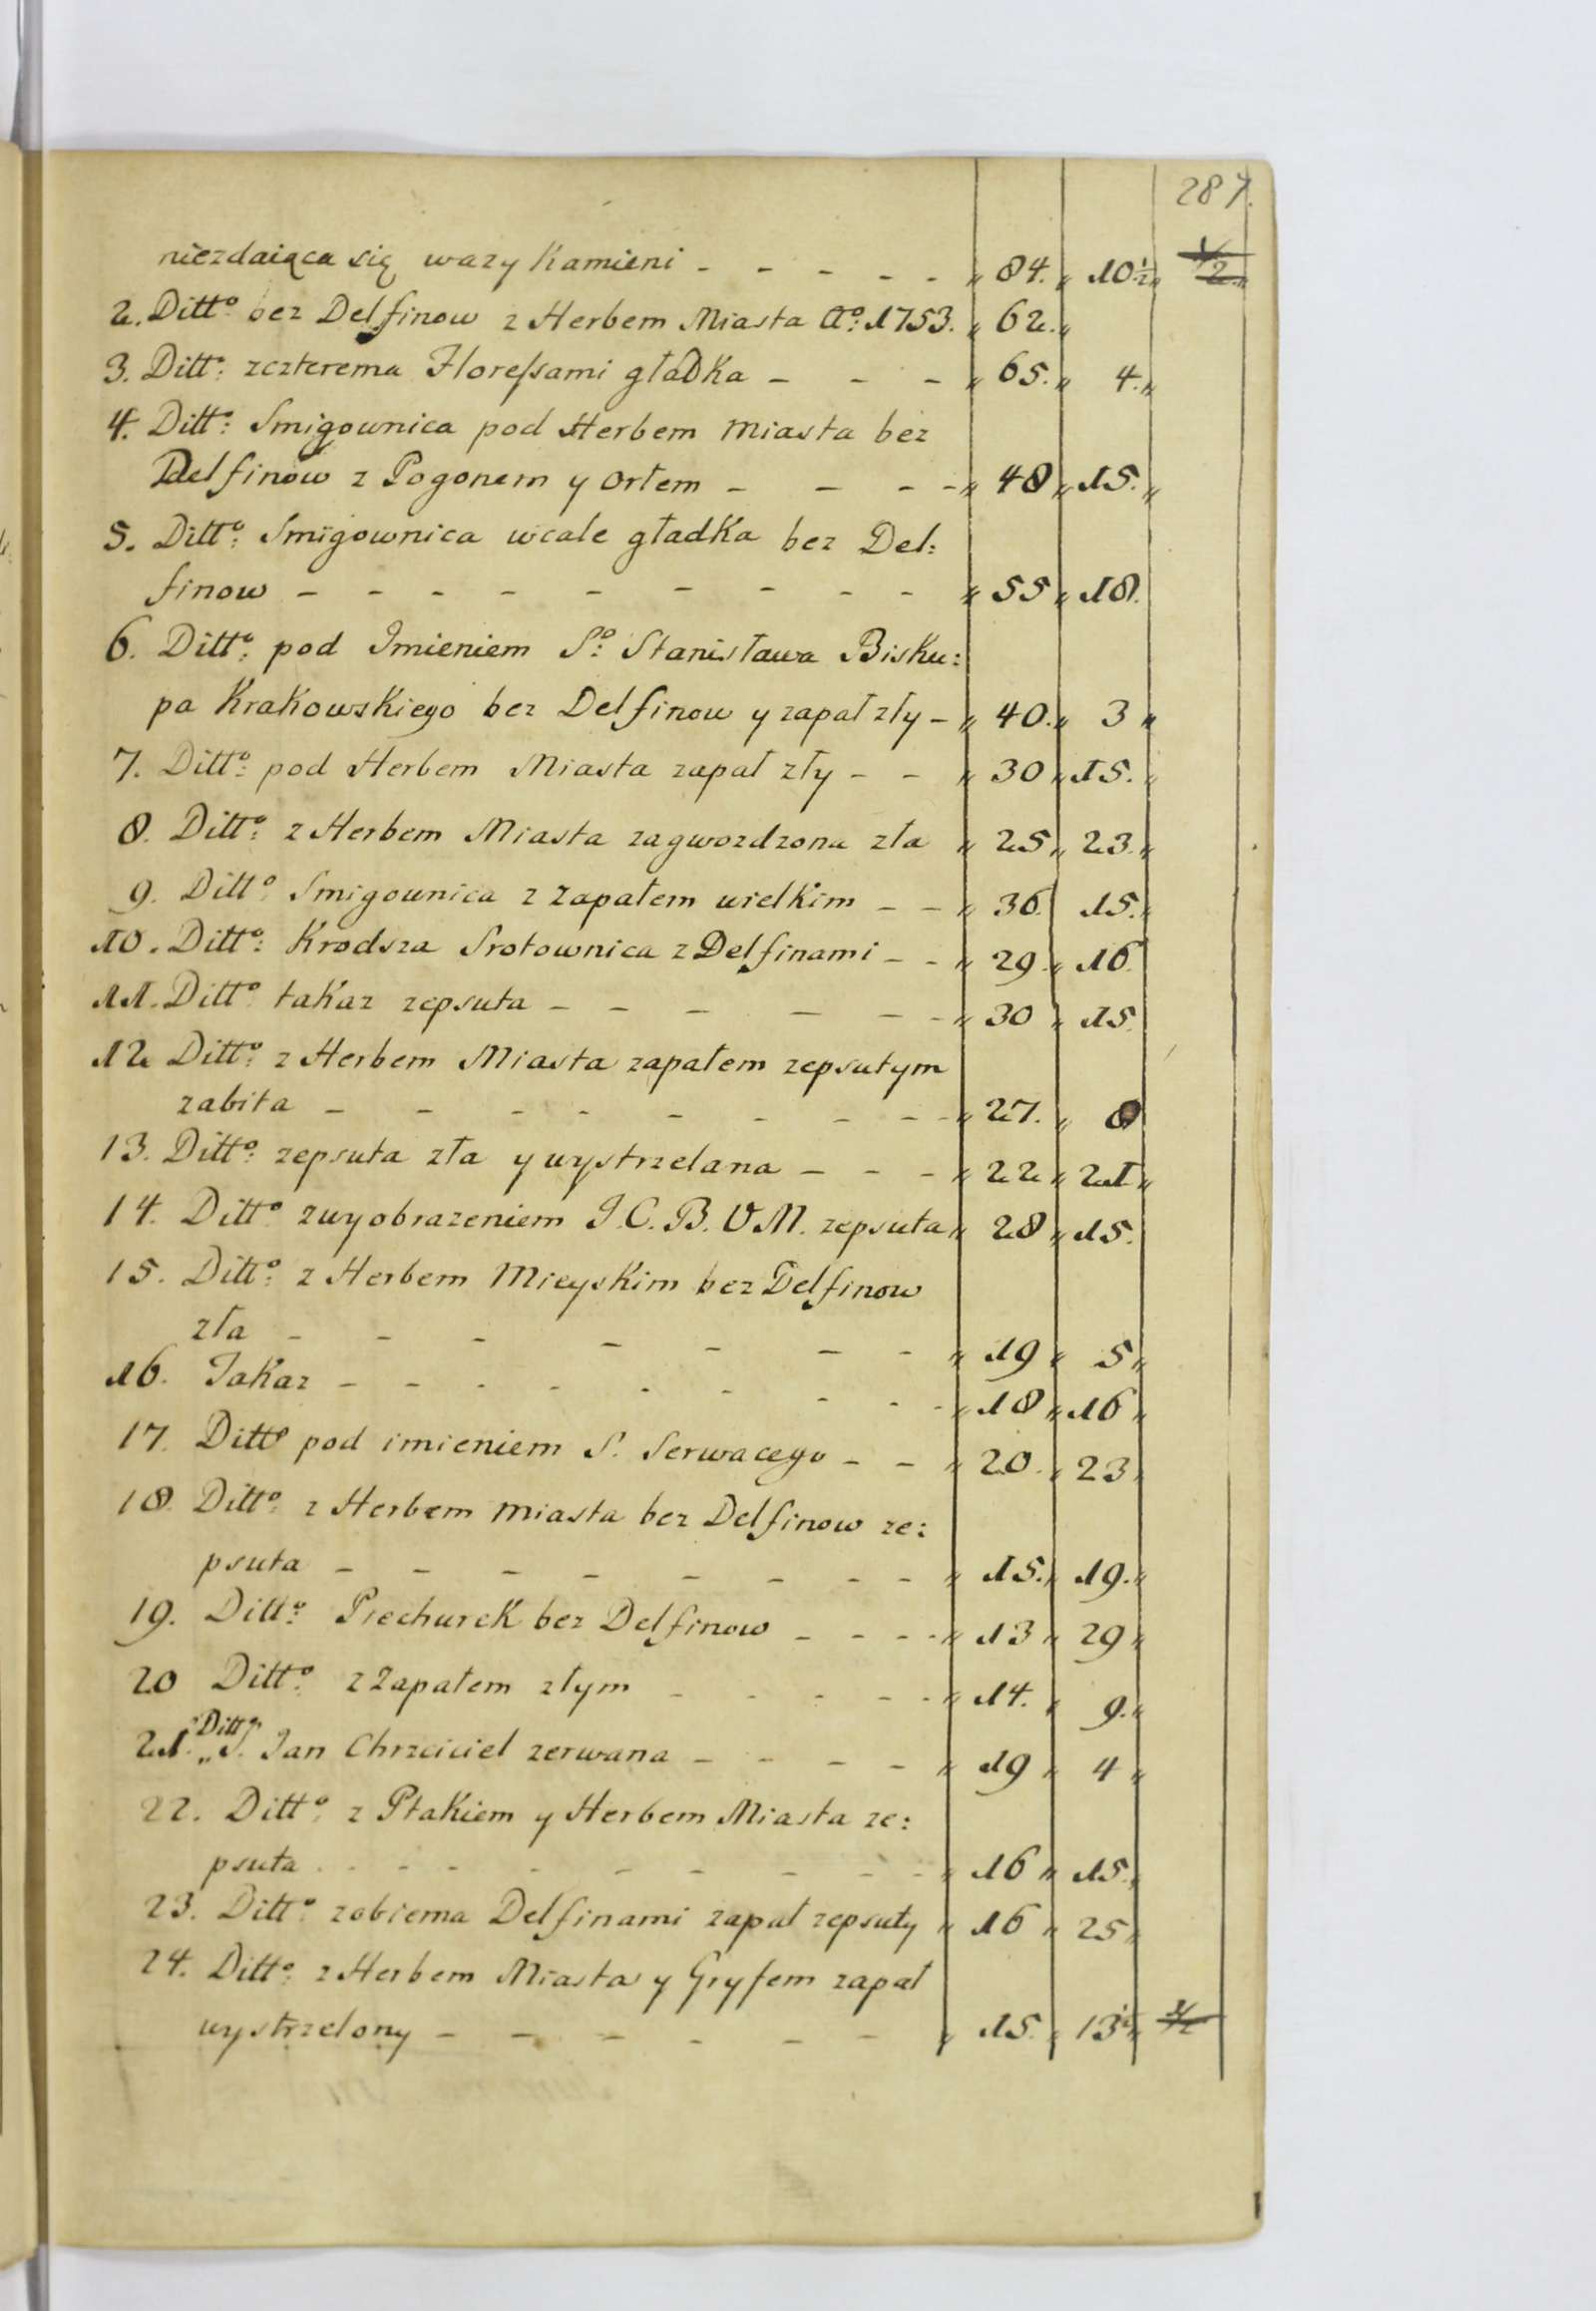 287.
niezdaiąca się wazy Kamieni - - - - - " 84. " 10 1/2 " 1/2 "
2. Ditt°: bez Delfinow z Herbem Miasta A°: 1753. " 62. "
3. Ditt°: zczterema Floreſsami gładka - - - " 65. " 4. "
4. Ditt°: Smigownica pod Herbem Miasta bez
Delfinow z Pogonem y Orłem - - - - " 48 " 15. "
5. Ditt°: Smigownica wcale gładka bez Del:
finow - - - - - - - - - " 55 " 18.
6. Ditt°: pod Imieniem S°: Stanisława Bisku:
pa Krakowskiego bez Delfinow y zapał zły - " 40. " 3 "
7. Ditt°: pod Herbem Miasta zapał zły - - " 30 " 15. "
8. Ditt°: z Herbem Miasta zagwozdzona zła " 25 " 23. "
9. Ditt° Smigownica z zapałem wielkim - - " 36. 15. "
10. Ditt°: Krodsza Srotownica z Delfinami - - " 29. " 16.
11. Ditt° takaz zepsuta - - - - - - " 30 " 15.
12 Ditt°: z Herbem Miasta zapałem zepsutym
zabita - - - - - - - - - " 27. " 8
13. Ditt°: zepsuta zła y wystrzelana - - - " 22 " 21 "
14. Ditt° zwyobrazeniem I. C. B. V M. zepsuta " 28 " 15.
15. Ditt°: z Herbem Mieyskim bez Delfinow
zła - - - - - - - " 19 " 5 "
16. Takaz - - - - - - - - - " 18 " 16 "
17. Ditt° pod imieniem S. Serwacego - - " 20. " 23 "
18. Ditt°: z Herbem miasta bez Delfinow ze:
psuta - - - - - - - - " 15. " 19. "
19. Ditt°: Piechurek bez Delfinow - - - - " 13 " 29 "
20 Ditt°: z Zapałem złym - - - - - " 14. " 9. "
21. " Ditt° S. Jan Chrzciciel zerwana - - - - " 19 " 4 "
22. Ditt°: z Ptakiem y Herbem Miasta ze:
psuta - - - - - - - - " 16 " 15. "
23. Ditt°: zobiema Delfinami zapał zepsuty " 16 " 25 "
24. Ditt°: z Herbem Miasta y Gryfem zapał
wystrzelony - - - - - - " 15. " 13 1/2 "